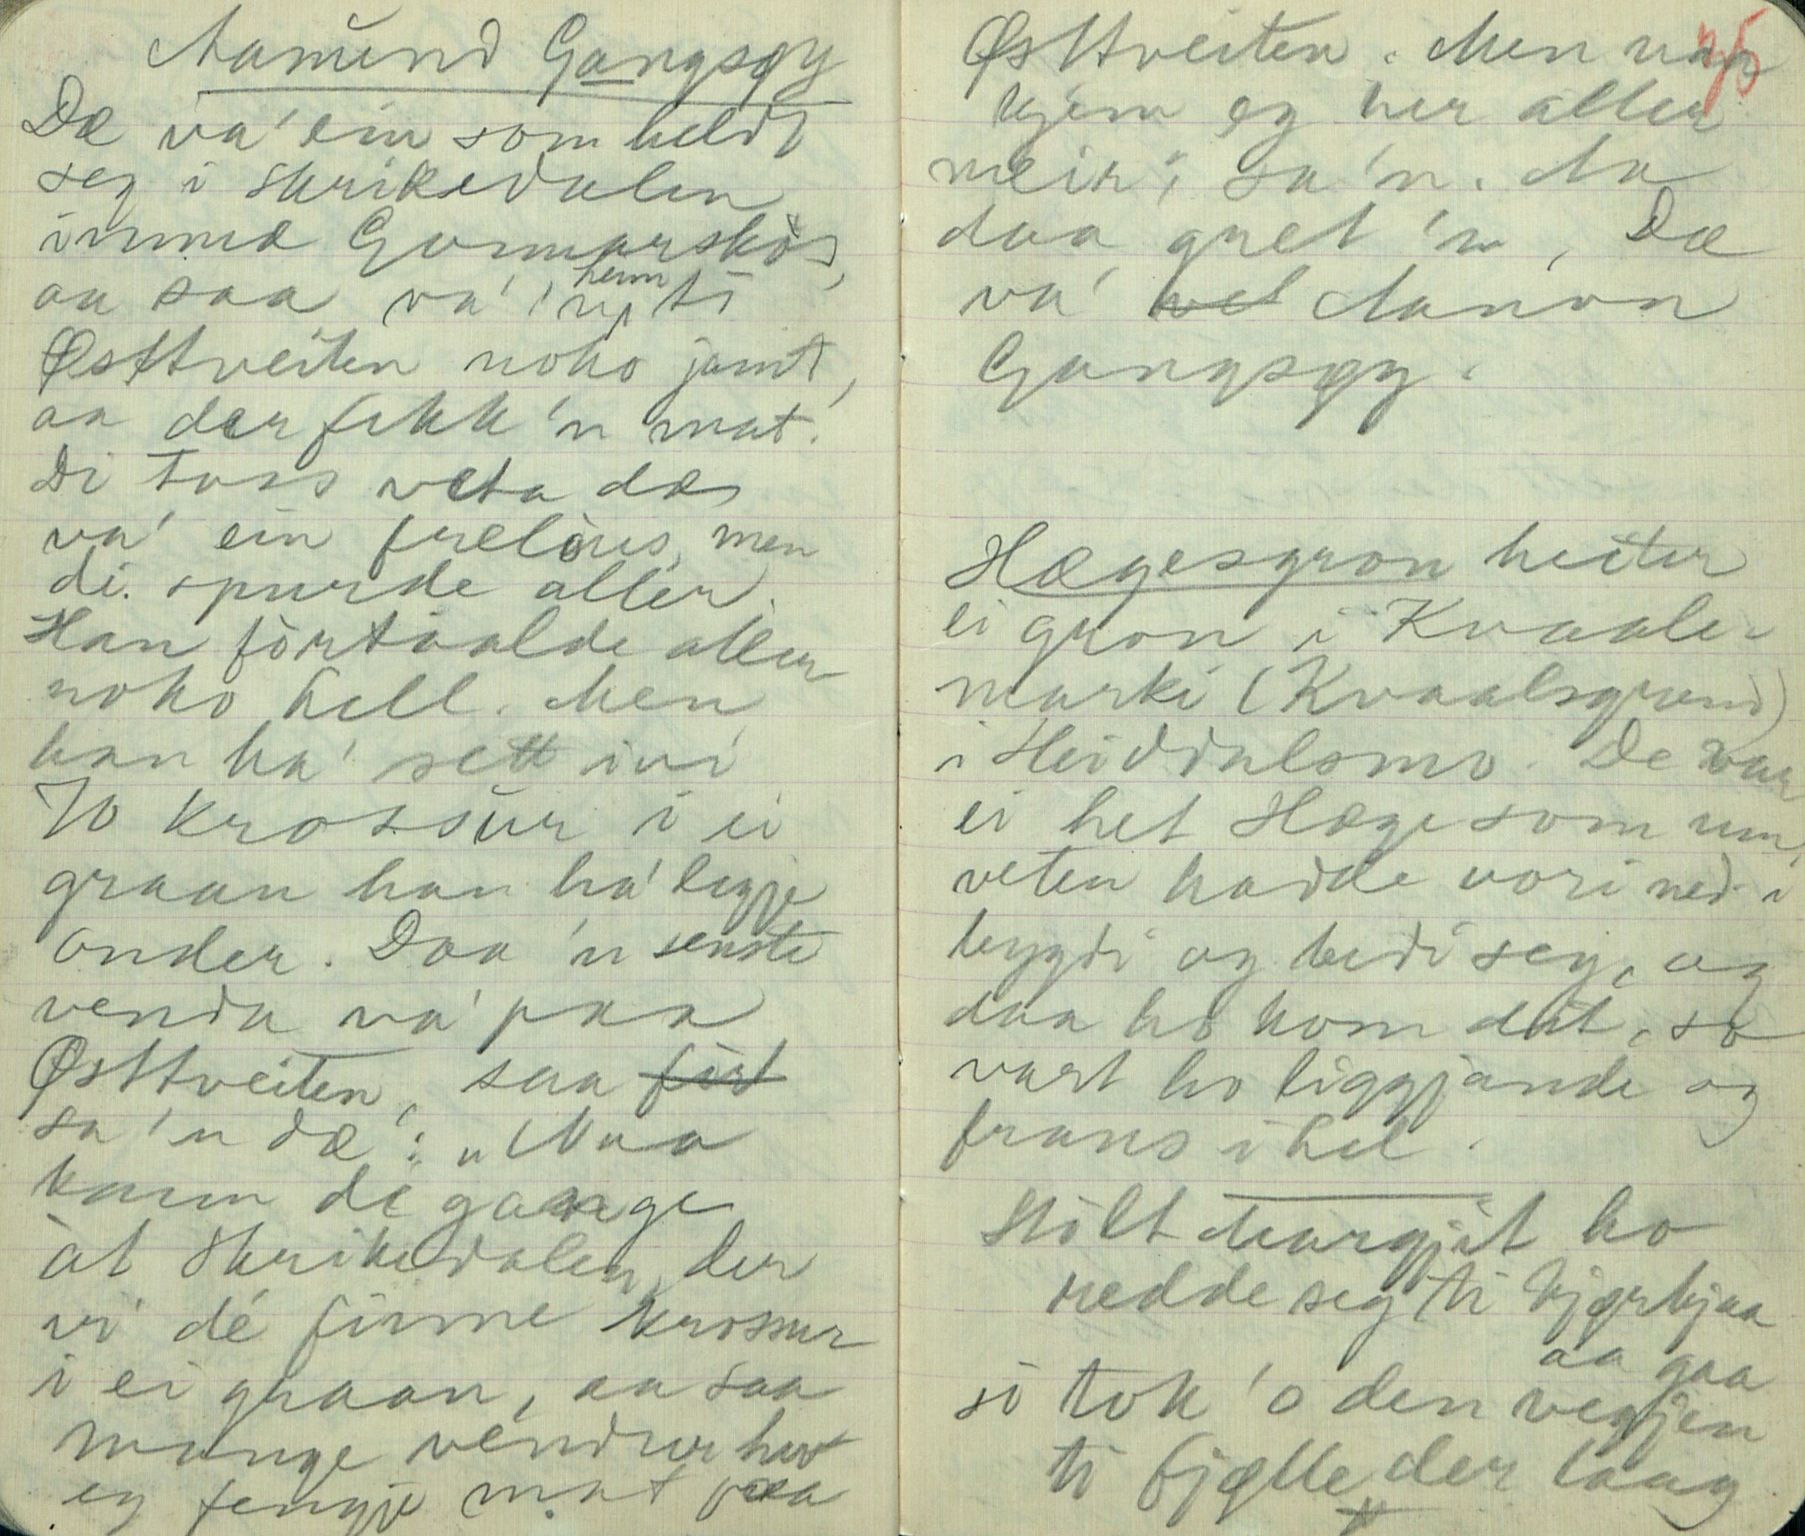 Aamund Gangsøy
Dæ va' ein som heldt
seg i Skrikedalen
innmæ Gunnarskås,
aa saa va' 'n heim ti
Østtveiten noko jamt,
aa der fekk 'n mat.
Di toss veta dæ
va' ein frelöus, men
di spurde aller.
Han förtaalde aller
noko hell. Men
han ha' sett ivi
70 krossur i ei
graan han ha' leggje
onder. Daa 'n senste
venda va' paa
Østtveiten, saa först
sa 'n dæ': „Naa
kann de gaange
åt Skrikedalen, der
vi' dé finne krossur
i ei graan, aa saa
mange vendur hev
eg fengje mat paa
Østtveiten. Men naa
kjem eg her aller
meir", sa 'n. Aa
daa gret 'n, Dæ
va' vel Aamon
Gangsøy.
25
Hægesgron heiter
ei gron i Kvaale-
marki (Kvaalsgrend)
i Heiddalsmo. De var
ei het Hæge som um
veten hadde vori ned i
bygdi og bedi seg, og
daa ho kom dit, so
vart ho liggjande og
fraus i hel.
Stölt Margjit ho
redde seg ti kjørkjaa
aa gaa
so tok 'o den vegjen
ti fjølle der laag